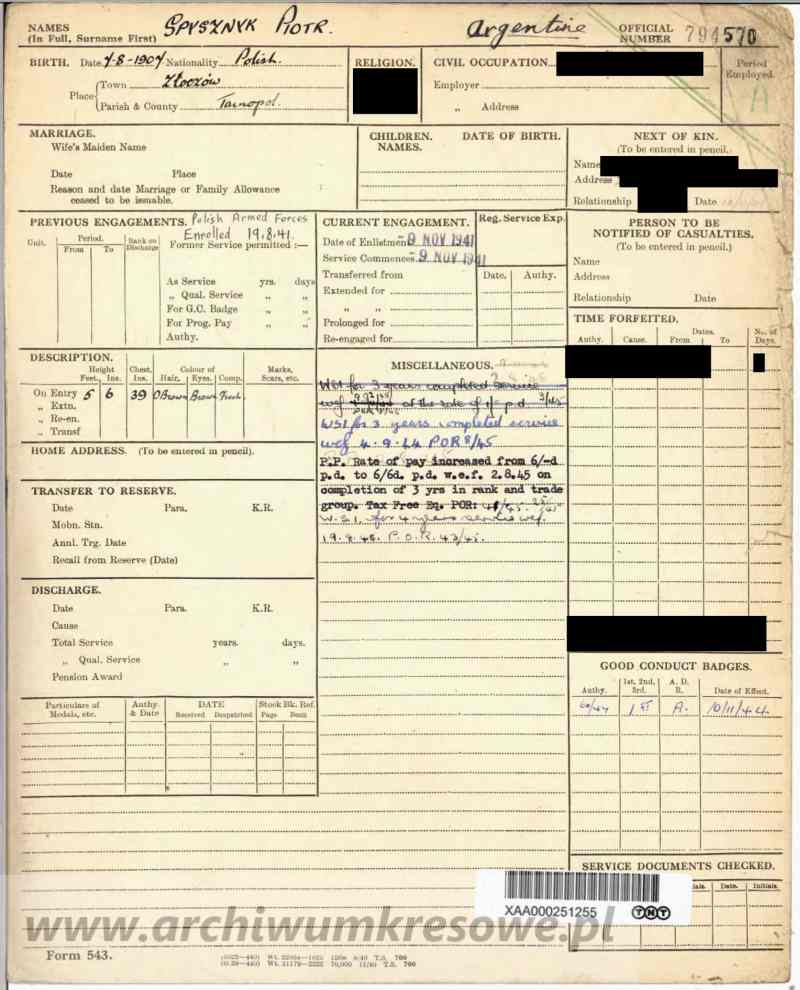 NAMES
(In Full, Surname First) SPYSZNYK PIOTR. Argentine OFFICIAL NUMBER 794570
BIRTH. Date 7-8-1907 Nationality Polish.
Place Town Złoczów
Parish & County Tarnopol.
RELIGION.
CIVIL OCCUPATION
Employer
„ Address
Period Employed.
A
MARRIAGE.
Wife's Maiden Name
Date Place
Reason and date Marriage or Family Allowance
ceased to be issuable.
CHILDREN. DATE OF BIRTH.
NAMES.
NEXT OF KIN.
(To be entered in pencil.)
Name
Address
Relationship Date
PREVIOUS ENGAGEMENTS. Polish Armed Forces
Enrolled 19.8.41.
Unit. Period. From To Rank on Discharge
Former Service permitted :—
As Service yrs. days
„ Qual. Service „ „
For G.C. Badge „ „
For Prog. Pay „ „
Authy.
CURRENT ENGAGEMENT.
Date of Enlistment -9 NOV 1941
Service Commences -9 NOV 1941
Transferred from
Extended for
„ „
Prolonged for
Re-engaged for
Reg. Service Exp.
Date. Authy.
PERSON TO BE
NOTIFIED OF CASUALTIES.
(To be entered in pencil.)
Name
Address
Relationship Date
TIME FORFEITED.
Authy. Cause. Dates. From To No. of Days.
DESCRIPTION.
Height Feet. Ins. Chest. Ins. Colour of Hair. Eyes. Comp. Marks, Scars, etc.
On Entry 5 6 39 D.Brown Brown Fresh
„ Extn.
„ Re-en.
„ Transf
HOME ADDRESS. (To be entered in pencil).
TRANSFER TO RESERVE.
Date Para. K.R.
Mobn. Stn.
Annl. Trg. Date
Recall from Reserve (Date)
DISCHARGE.
Date Para. K.R.
Cause
Total Service years. days.
„ Qual. Service „ „
Pension Award
Particulars of Medals, etc. Authy. & Date DATE Received Despatched Stock Bk. Ref. Page Item
MISCELLANEOUS.
WSI for 3 years completed service
wef at the rate of 1/- p.d 3/45
WSI for 3 years completed service
wef 4.9.44 POR 8/45
P.P. Rate of pay increased from 6/-d
p.d. to 6/6d. p.d. w.e.f. 2.8.45 on
completion of 3 yrs in rank and trade
group. Tax Free Eq. POR:
W.S.I. for 4 years service wef.
19.8.45. P.O.R. 43/45.
GOOD CONDUCT BADGES.
Authy. 1st, 2nd, 3rd. A. D. R. Date of Effect.
60/44 1ST A. 10/11/44.
SERVICE DOCUMENTS CHECKED.
Date. Initials
XAA000251255 TNT
www.archiwumkresowe.pl
Form 543.